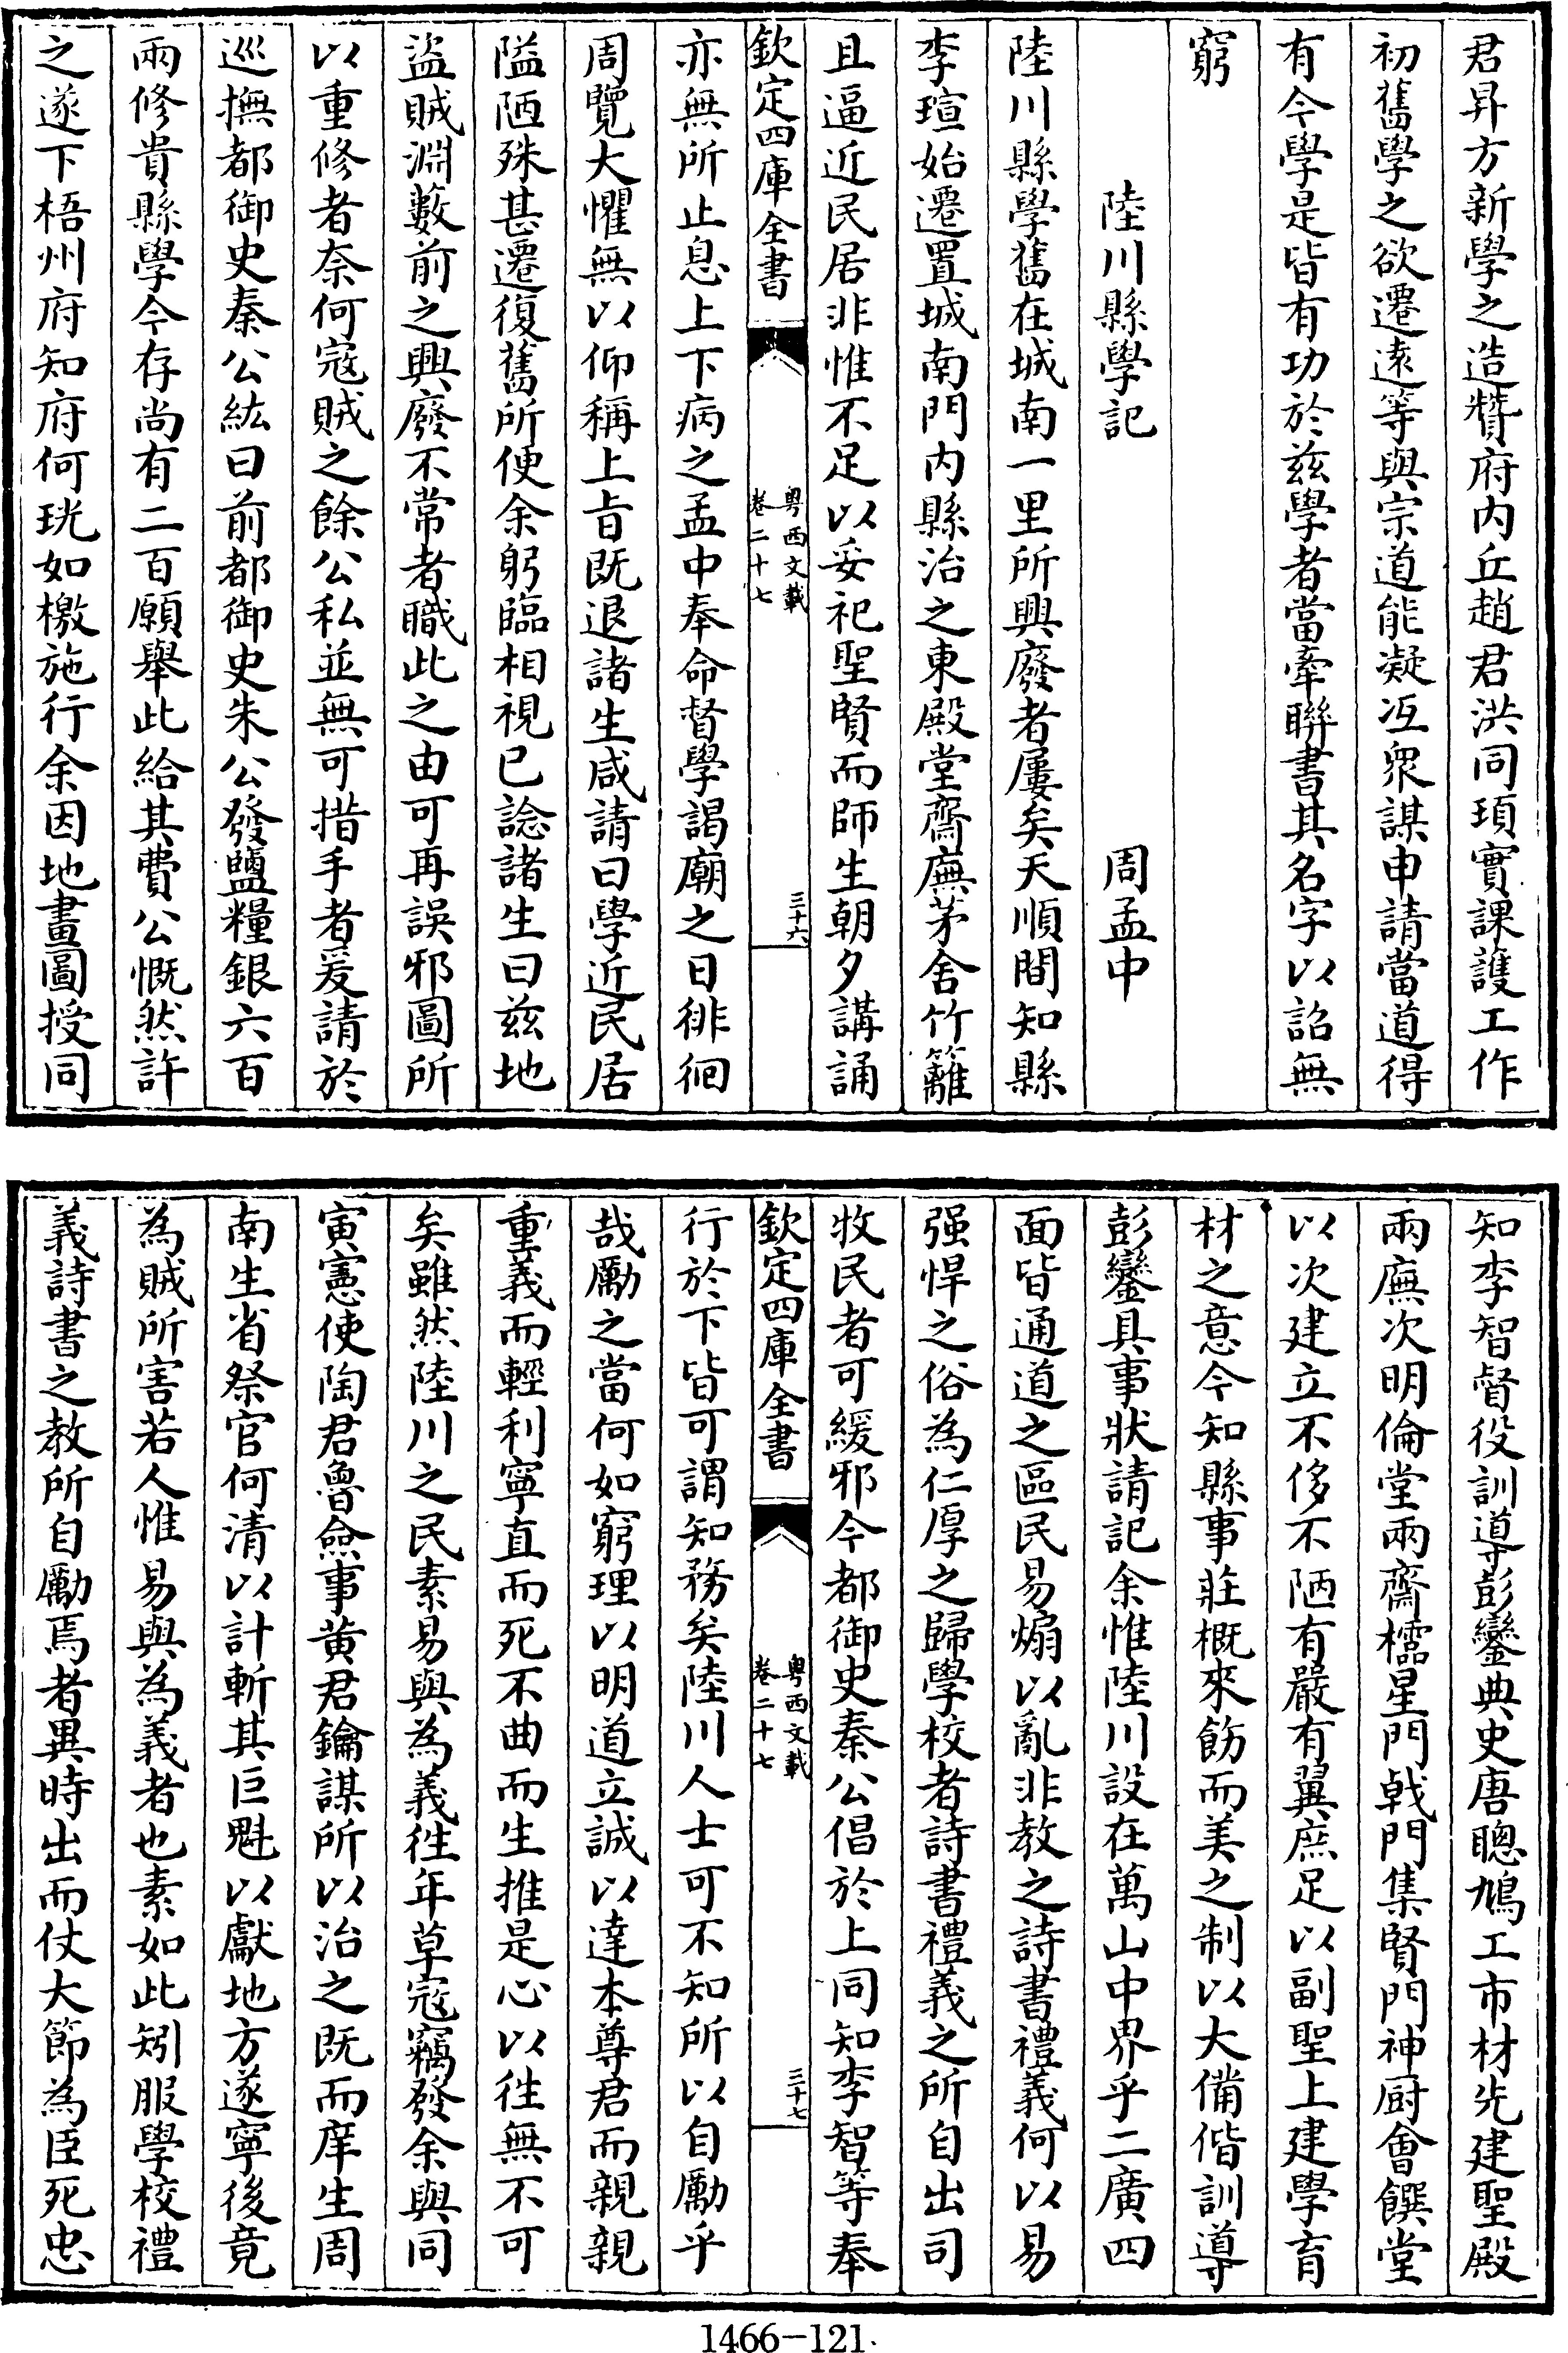 君昇方新學之造贊府内丘趙君洪同頊實課護工作
初舊學之欲遷逺等與宗道能凝冱衆謀申請當道得
有今學是皆有功於兹學者當牽聯書其名字以詔無
窮
陸川縣學記　周孟中
陸川縣學舊在城南一里所興廢者屢矣天順間知縣
李瑄始遷置城南門内縣治之東殿堂齋廡茅舍竹籬
且逼近民居非惟不足以妥祀聖賢而師生朝夕講誦
欽定四庫全書　粤西文載 卷二十七　三十六
亦無所止息上下病之孟中奉命督學謁廟之日徘徊
周覽大懼無以仰稱上旨既退諸生咸請曰學近民居
隘陋殊甚遷復舊所便余躬臨相視已諗諸生曰兹地
盜賊淵藪前之興廢不常者職此之由可再誤邪圖所
以重修者奈何寇賊之餘公私並無可措手者爰請於
巡撫都御史秦公紘曰前都御史朱公發鹽糧銀六百
兩修貴縣學今存尚有二百願舉此給其費公慨然許
之遂下梧州府知府何珖如檄施行余因地畫圖授同
知李智督役訓導彭鑾典史唐聰鳩工市材先建聖殿
兩廡次明倫堂兩齋櫺星門戟門集賢門神厨會饌堂
以次建立不侈不陋有嚴有翼庶足以副聖上建學育
材之意今知縣事莊概來飭而美之制以大備偕訓導
彭鑾具事狀請記余惟陸川設在萬山中界乎二廣四
面皆通道之區民易煽以亂非教之詩書禮義何以易
强悍之俗為仁厚之歸學校者詩書禮義之所自出司
牧民者可緩邪今都御史秦公倡於上同知李智等奉
欽定四庫全書　粤西文載 卷二十七　三十七
行於下皆可謂知務矣陸川人士可不知所以自勵乎
哉勵之當何如窮理以明道立誠以達本尊君而親親
重義而輕利寧直而死不曲而生推是心以徃無不可
矣雖然陸川之民素易與為義徃年草寇竊發余與同
寅憲使陶君魯僉事黄君鑰謀所以治之既而庠生周
南生省祭官何清以計斬其巨魁以獻地方遂寧後竟
為賊所害若人惟易與為義者也素如此矧服學校禮
義詩書之教所自勵焉者異時出而仗大節為臣死忠
1466-121